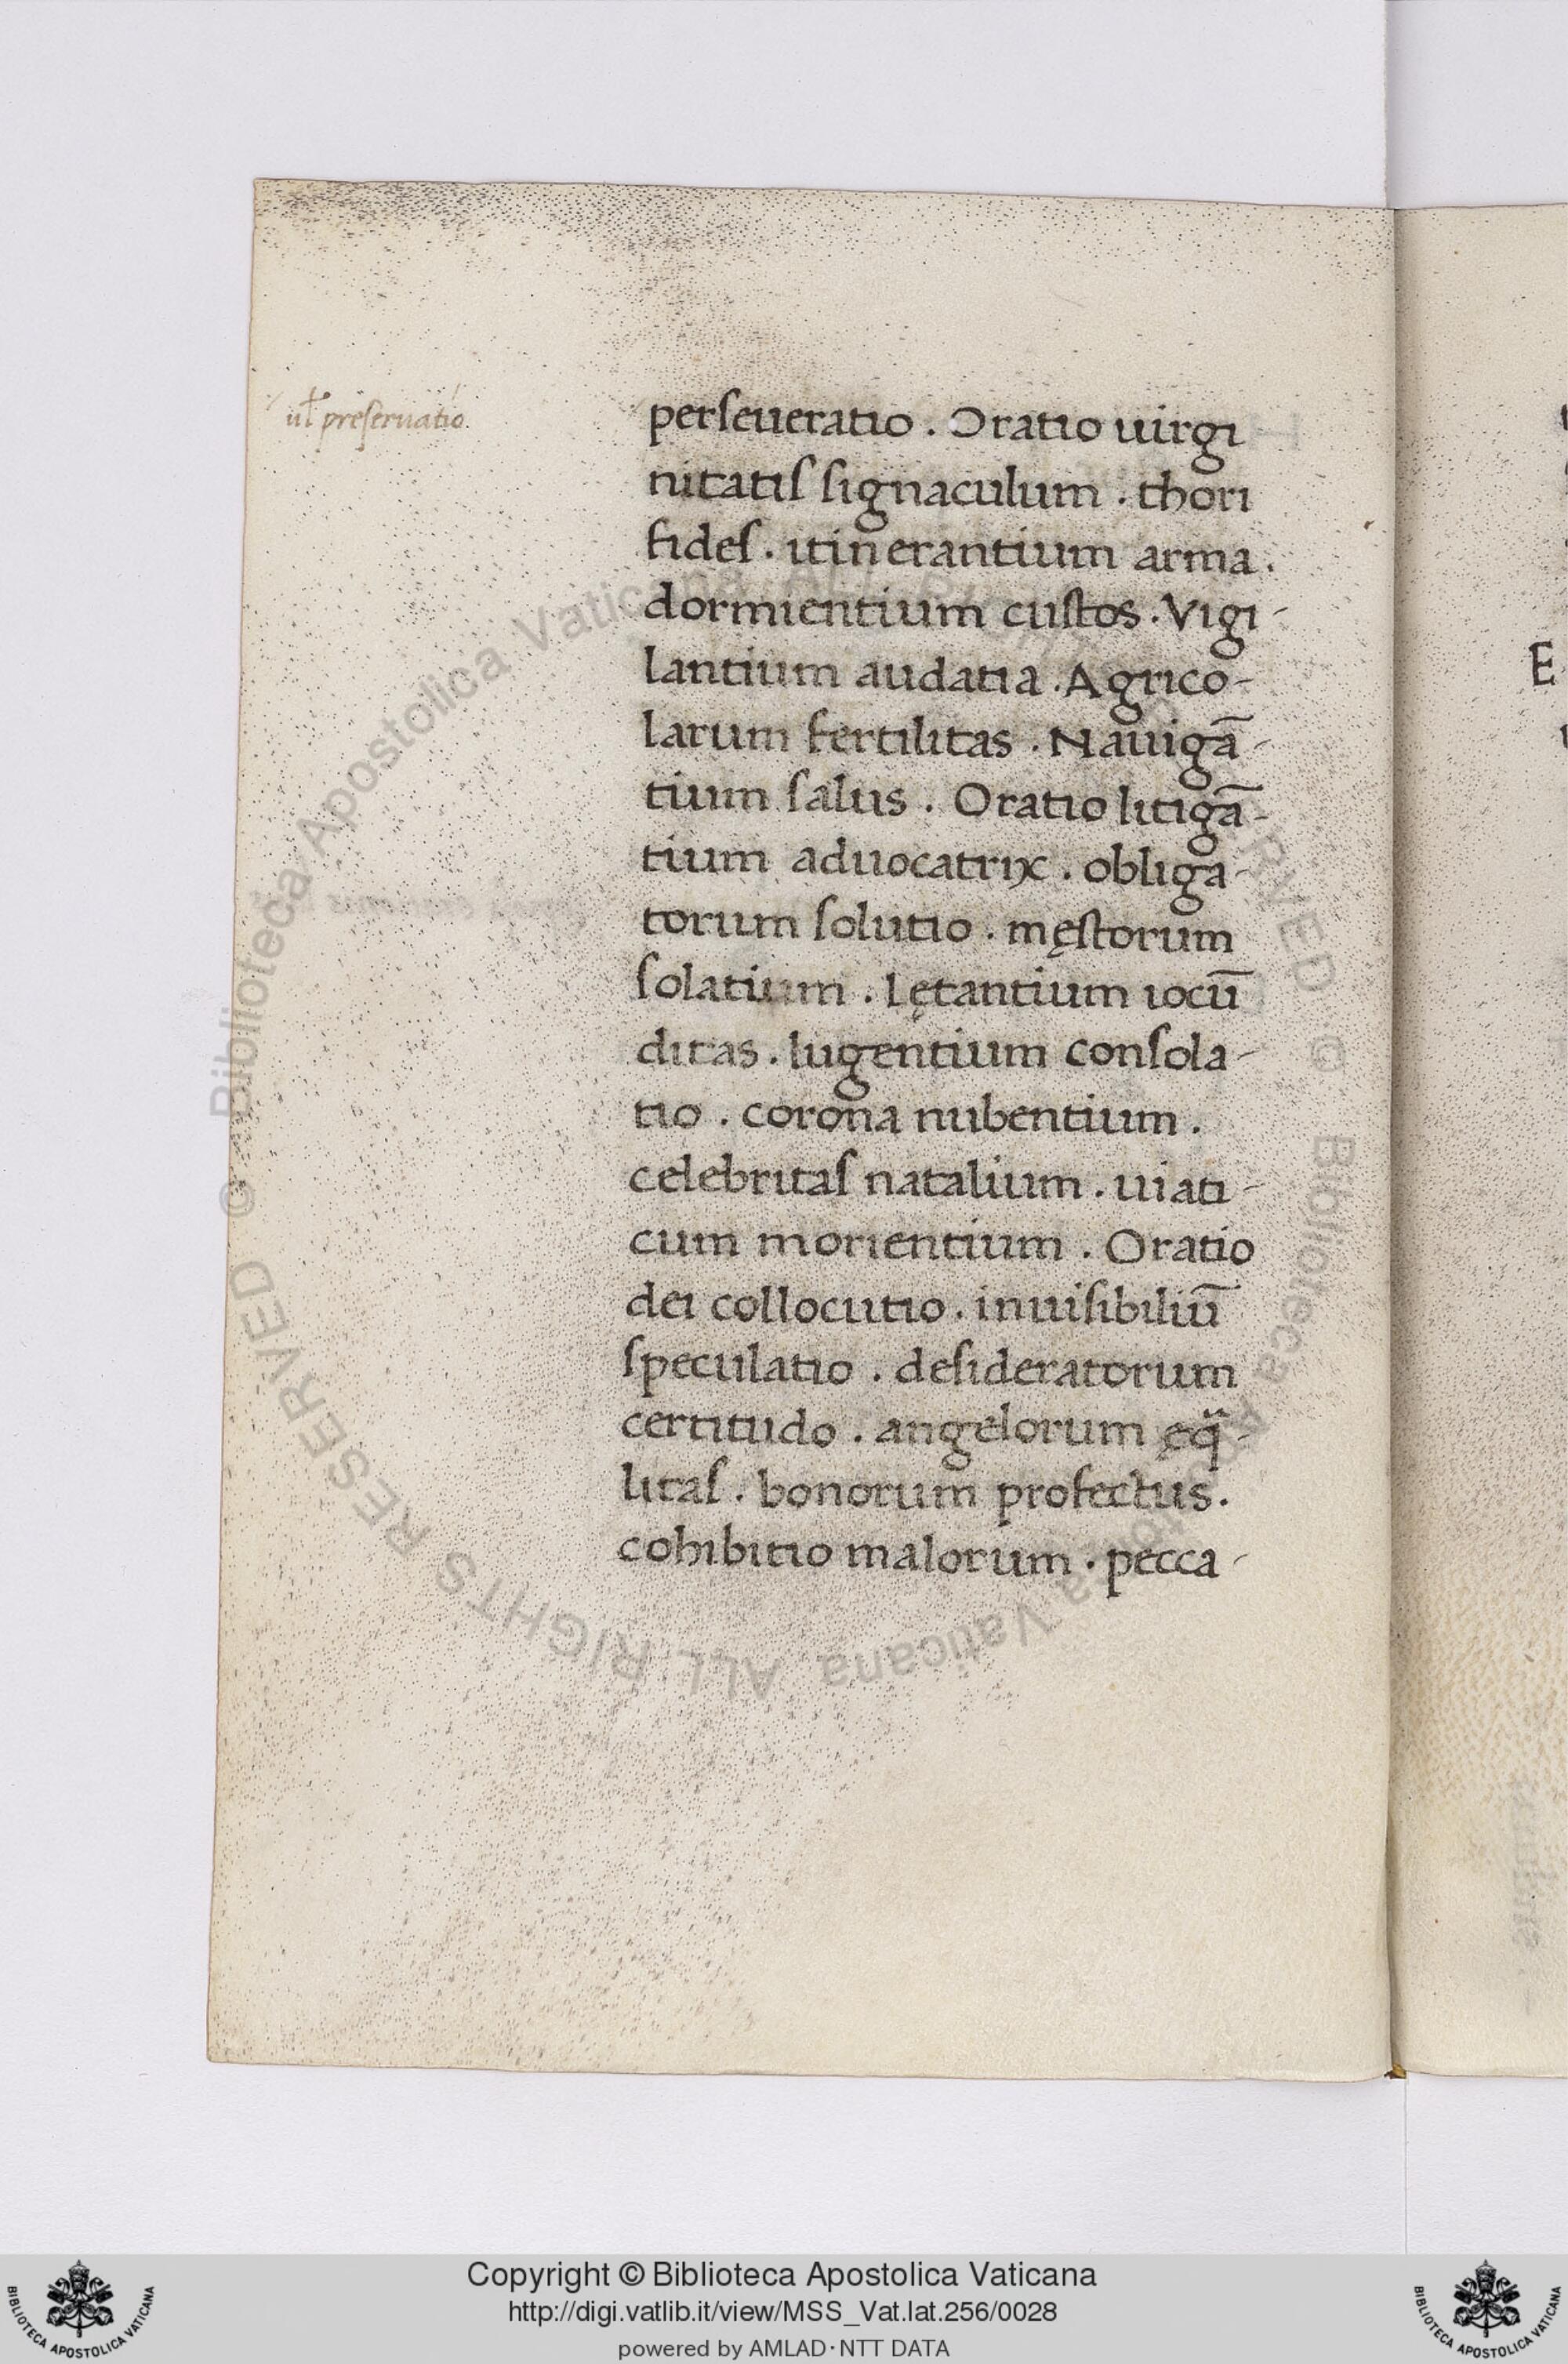 ul̄ preseruatio.
perseueratio . Oratio uirgi
nitatis signaculum . thori
fides . itinerantium arma .
dormientium custos . Vigi-
lantium audatia . Agrico-
larum fertilitas . Nauigā-
tium salus . Oratio litigā-
tium aduocatrix . obliga-
torum solutio . męstorum
solatium . lętantium iocū
ditas . lugentium consola-
tio . corona nubentium .
celebritas natalium . uiati-
cum morientium . Oratio
dei collocutio . inuisibiliū
speculatio . desideratorum
certitudo . angelorum ęq̈-
litas . bonorum profectus .
cohibitio malorum . pecca-
E
© Biblioteca Apostolica Vaticana ALL RIGHTS RESERVED © Biblioteca Apostolica Vaticana ALL RIGHTS RESERVED
Copyright © Biblioteca Apostolica Vaticana
http://digi.vatlib.it/view/MSS_Vat.lat.256/0028
powered by AMLAD·NTT DATA
BIBLIOTECA APOSTOLICA VATICANA
BIBLIOTECA APOSTOLICA VATICANA